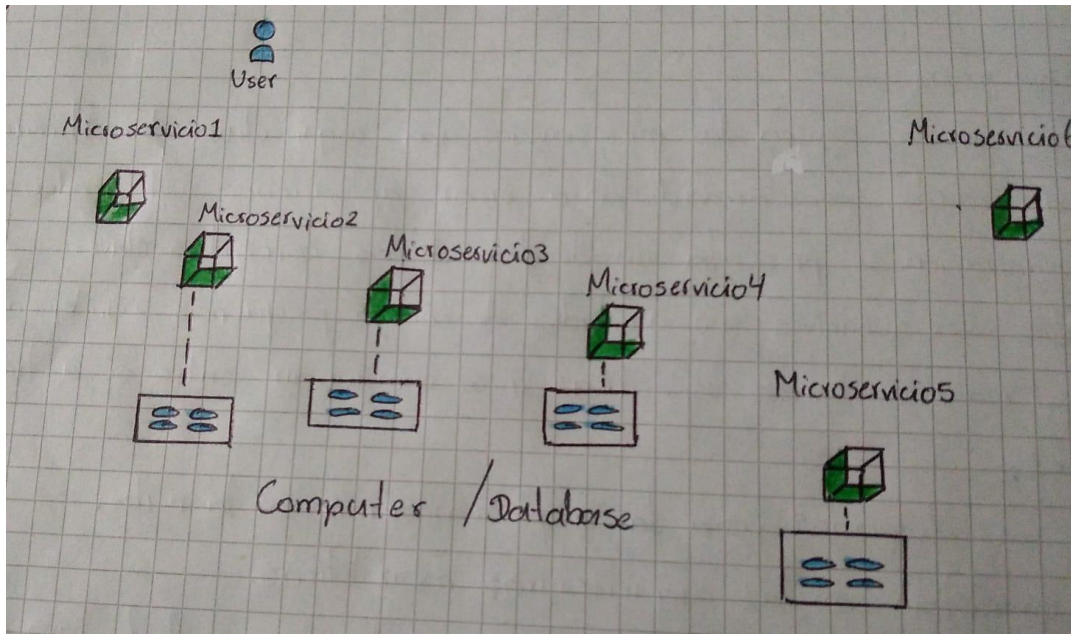 User
Microservicio1
Microservicio6
Microservicio2
Microservicio3
Microservicio4
Microservicio5
Computer / Database